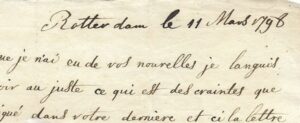 Rotterdam le 11 Mars 1798
que je n'ai eu de vos nouvelles je languis
oir au juste ce qui est des craintes que
iqué dans votre derniere et ci la lettre